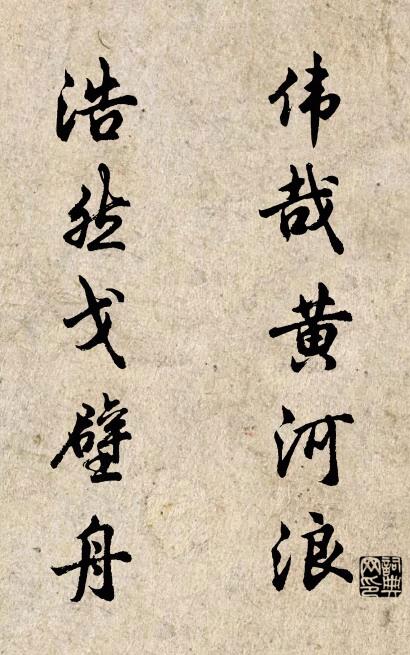 伟哉黄河浪
浩然戈壁舟
詞典网印